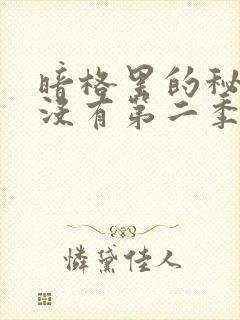 暗格里的秘
没有第二季
憐黛佳人